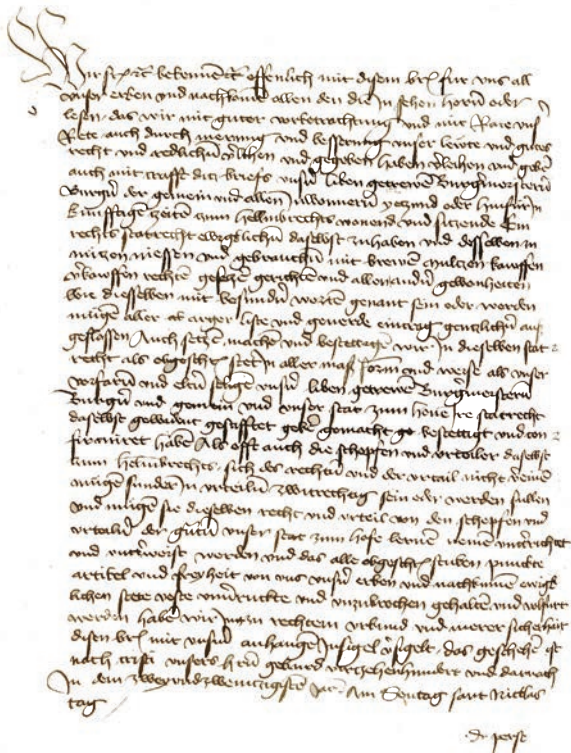 Wir fr etc bekennen etc offenlich mit disem brive fur uns all
unser erben und nachkomen allen den die In sehen horn oder
lesen das wir mit guter vorbetrachtung und mit Rate uns
Rete auch durch merung und besserung unser lewte und gutes
recht und redlichen verlihen und gegeben haben verleihen und geben
auch mit crafft ditz briefs unsern liben getrewen Burgermeistern
Burgern der gemein und allen Inwonern yetzund oder hinfur In
kunfftigen zeiten zum Helmbrechts wonend und sitzende Ein
rechts statrecht ewiglichen daselbst zuhaben und desselben zu
nutzen niessen und gebrauchen mit brewen multzen kauffen
verkauffen rechten gesetzen gerichten und allen andern gewonheiten
wie dieselben mit besundern worten genant sein oder werden
mugen aller arger liste und geverde eintrag gentzlichen auß
geslossen Auch setzen machen und bestettigen wir In dieselben stat
recht als obgeschr stet In aller maß form und weise als unser
vorfarn und eltern seligen unsern liben getrewen Burgermeistern
Burgern und gemein und unser stat zum Hove ire statrecht
daselbst gewidmt gestifftet geben gemacht bestettigt und con
firmiret haben Als offt auch die schepfen und urteiler daselbst
zum Helmbrechts sich des rechten und der urteil nicht verein
mugen sunder In urteiln zwitrechtig sein oder werden sullen
und mugen sie dieselben recht und urteil von den schepfen und
urteiln der unser stat zum Hofe lernen nemen unterrichtet
und unterweist werden und das alle obgeschr stuken punckte
artikel und freyheit von uns unsern erben und nachkomen ewig
lichen stete veste unverruckte und unzubrochen gehalten und volfurt
werden haben wir In zu rechtem urkund und merer sicherheit
disen brive mit unserm anhangenden Insigel versigelt das geschehen ist
nach cristi unsers hern geburd virtzehenhundert und darnach
In dem zweyundzwentzigisten Jar Am Sontag sant Niclas
tag